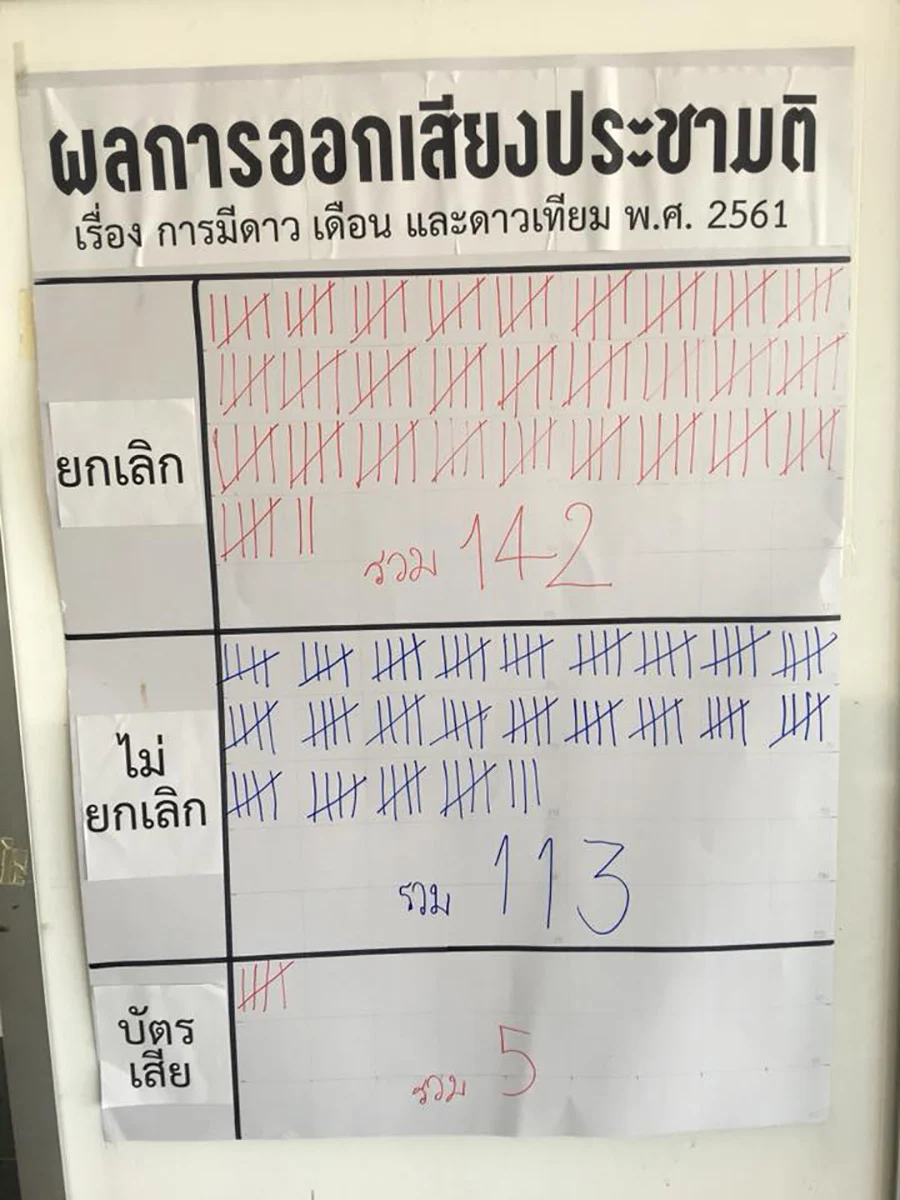 ผลการออกเสียงประชามติ
เรื่อง การมีดาว เดือน และดาวเทียม พ.ศ. 2561
ยกเลิก
รวม 142
ไม่
ยกเลิก
รวม 113
บัตร
เสีย
รวม 5